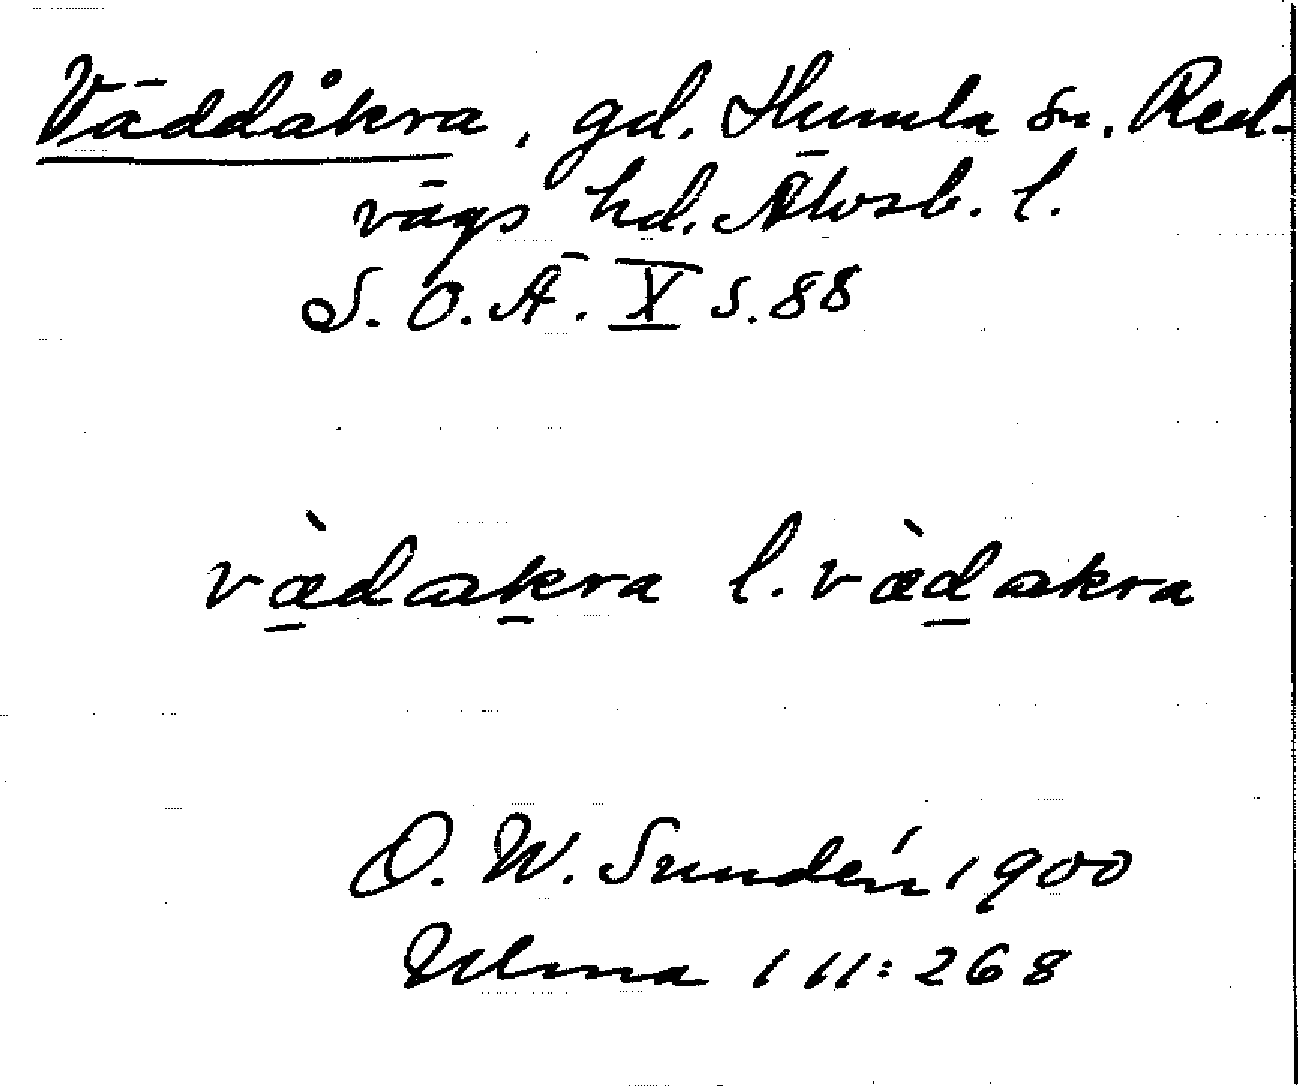 Väddåkra, gd. Humla sn. Red-
vägs hd. Älvsb. l.
S.O.Ä. X s. 88
væ̀dakra l. væ̀dakra
O. W. Sundén 1900
Ulma 111:268